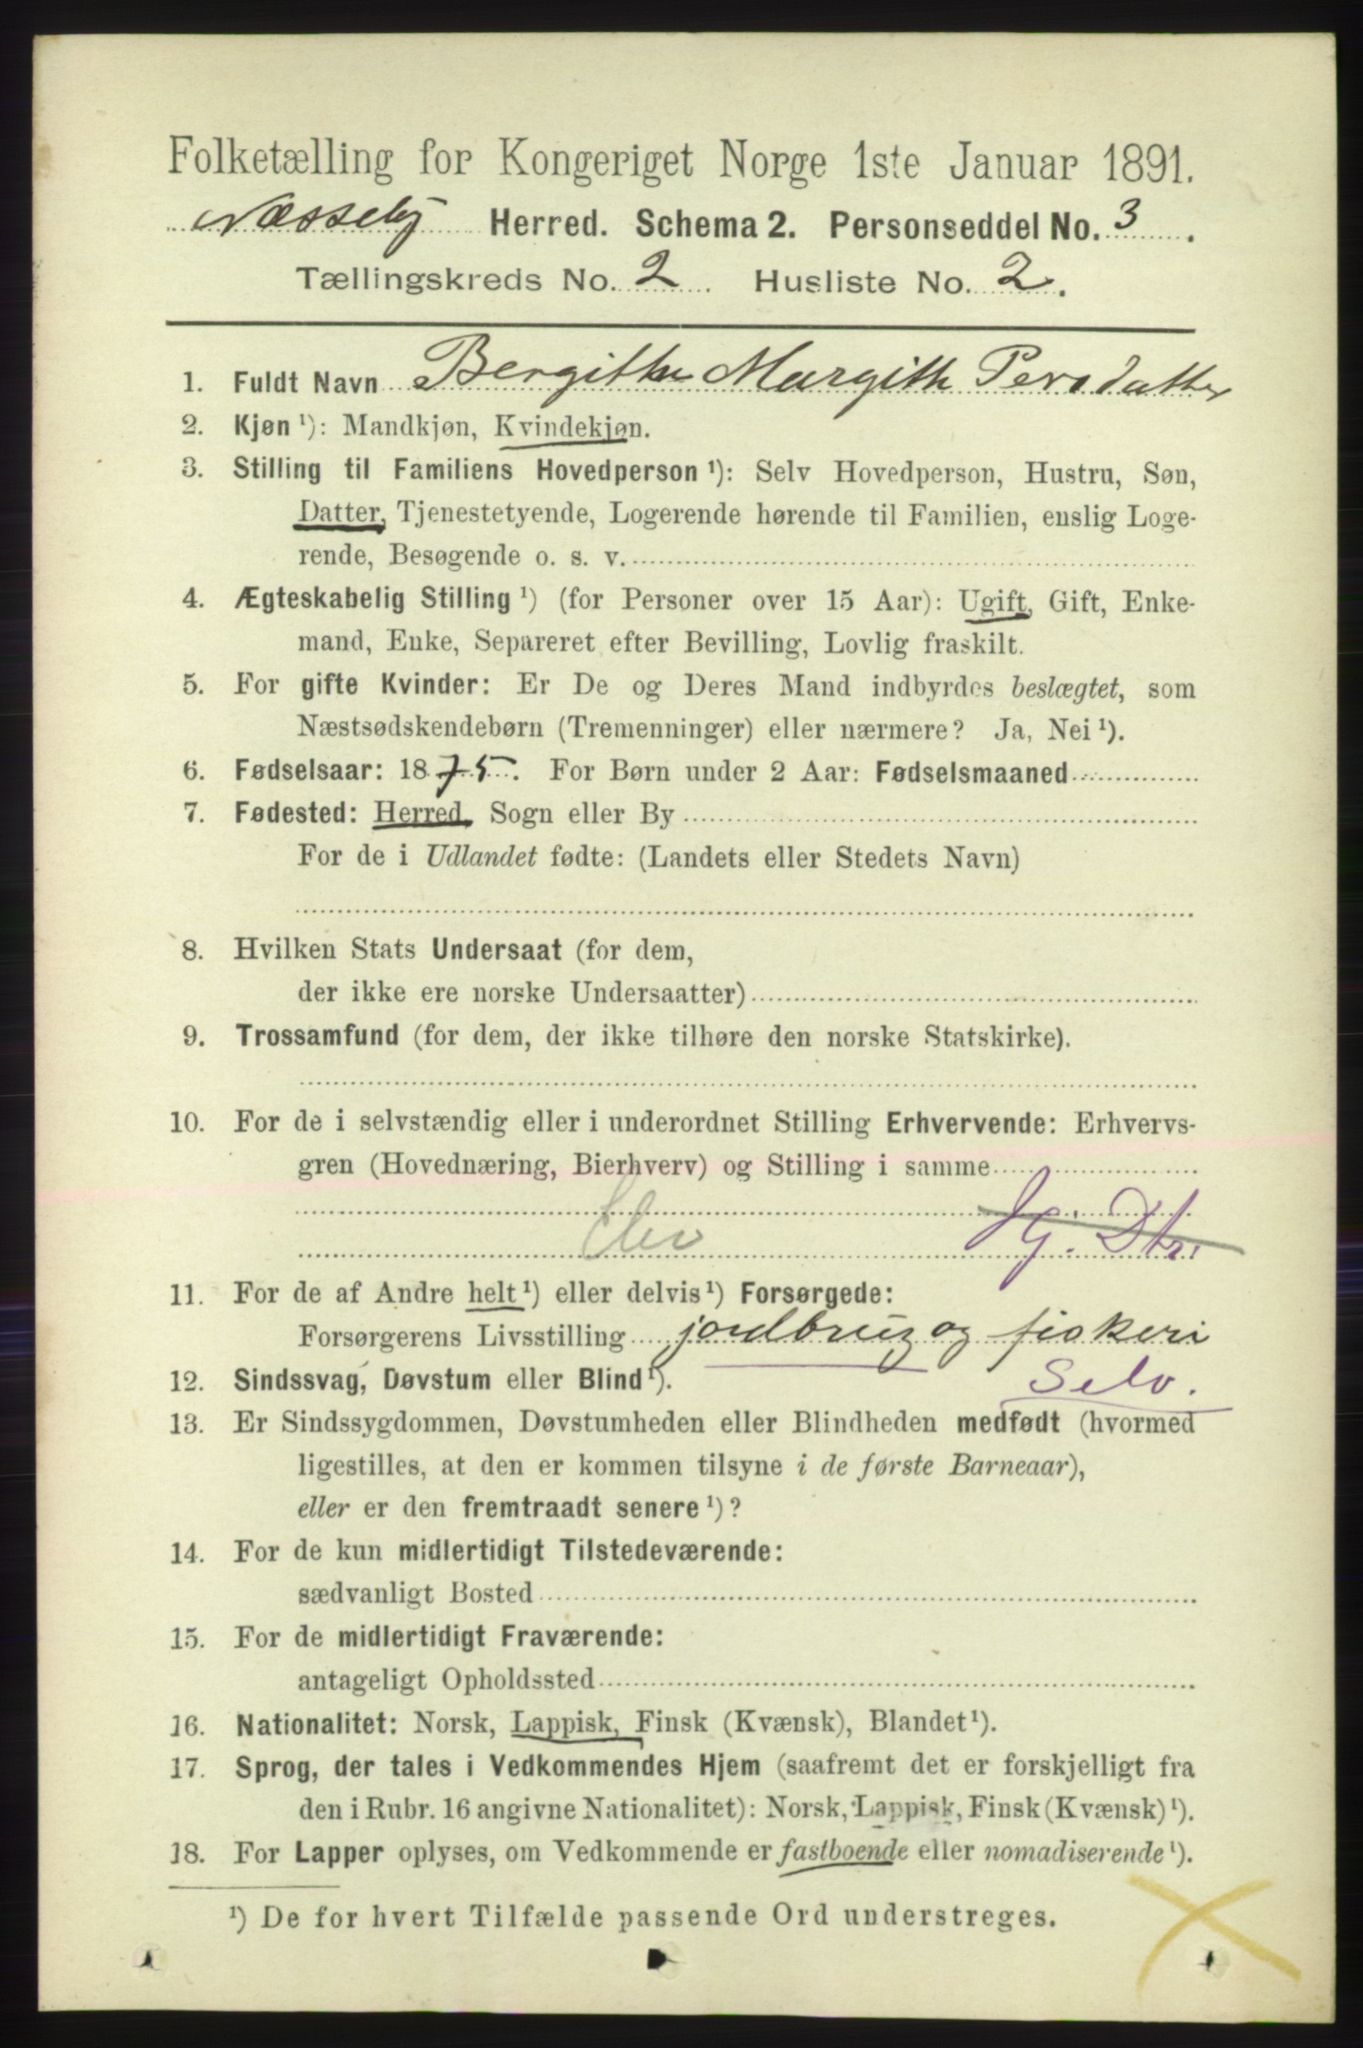 Folketælling for Kongeriget Norge 1ste Januar 1891.
Næsseby Herred. Schema 2. Personseddel No. 3.
Tællingskreds No. 2 Husliste No. 2.
1. Fuldt Navn Bergithe Margith Persdatter
2. Kjøn ¹): Mandkjøn, Kvindekjøn.
3. Stilling til Familiens Hovedperson ¹): Selv Hovedperson, Hustru, Søn,
Datter, Tjenestetyende, Logerende hørende til Familien, enslig Loge-
rende, Besøgende o. s. v.
4. Ægteskabelig Stilling ¹) (for Personer over 15 Aar): Ugift, Gift, Enke-
mand, Enke, Separeret efter Bevilling, Lovlig fraskilt.
5. For gifte Kvinder: Er De og Deres Mand indbyrdes beslægtet, som
Næstsødskendebørn (Tremenninger) eller nærmere? Ja, Nei ¹).
6. Fødselsaar: 1875. For Børn under 2 Aar: Fødselsmaaned
7. Fødested: Herred, Sogn eller By
For de i Udlandet fødte: (Landets eller Stedets Navn)
8. Hvilken Stats Undersaat (for dem,
der ikke ere norske Undersaatter)
9. Trossamfund (for dem, der ikke tilhøre den norske Statskirke).
10. For de i selvstændig eller i underordnet Stilling Erhvervende: Erhvervs-
gren (Hovednæring, Bierhverv) og Stilling i samme
Jg. Dtr.
11. For de af Andre helt ¹) eller delvis ¹) Forsørgede:
Forsørgerens Livsstilling jordbrug og fiskeri
12. Sindssvag, Døvstum eller Blind ¹). Selv.
13. Er Sindssygdommen, Døvstumheden eller Blindheden medfødt (hvormed
ligestilles, at den er kommen tilsyne i de første Barneaar),
eller er den fremtraadt senere ¹)?
14. For de kun midlertidigt Tilstedeværende:
sædvanligt Bosted
15. For de midlertidigt Fraværende:
antageligt Opholdssted
16. Nationalitet: Norsk, Lappisk, Finsk (Kvænsk), Blandet ¹).
17. Sprog, der tales i Vedkommendes Hjem (saafremt det er forskjelligt fra
den i Rubr. 16 angivne Nationalitet): Norsk, Lappisk, Finsk (Kvænsk) ¹).
18. For Lapper oplyses, om Vedkommende er fastboende eller nomadiserende ¹).
¹) De for hvert Tilfælde passende Ord understreges.